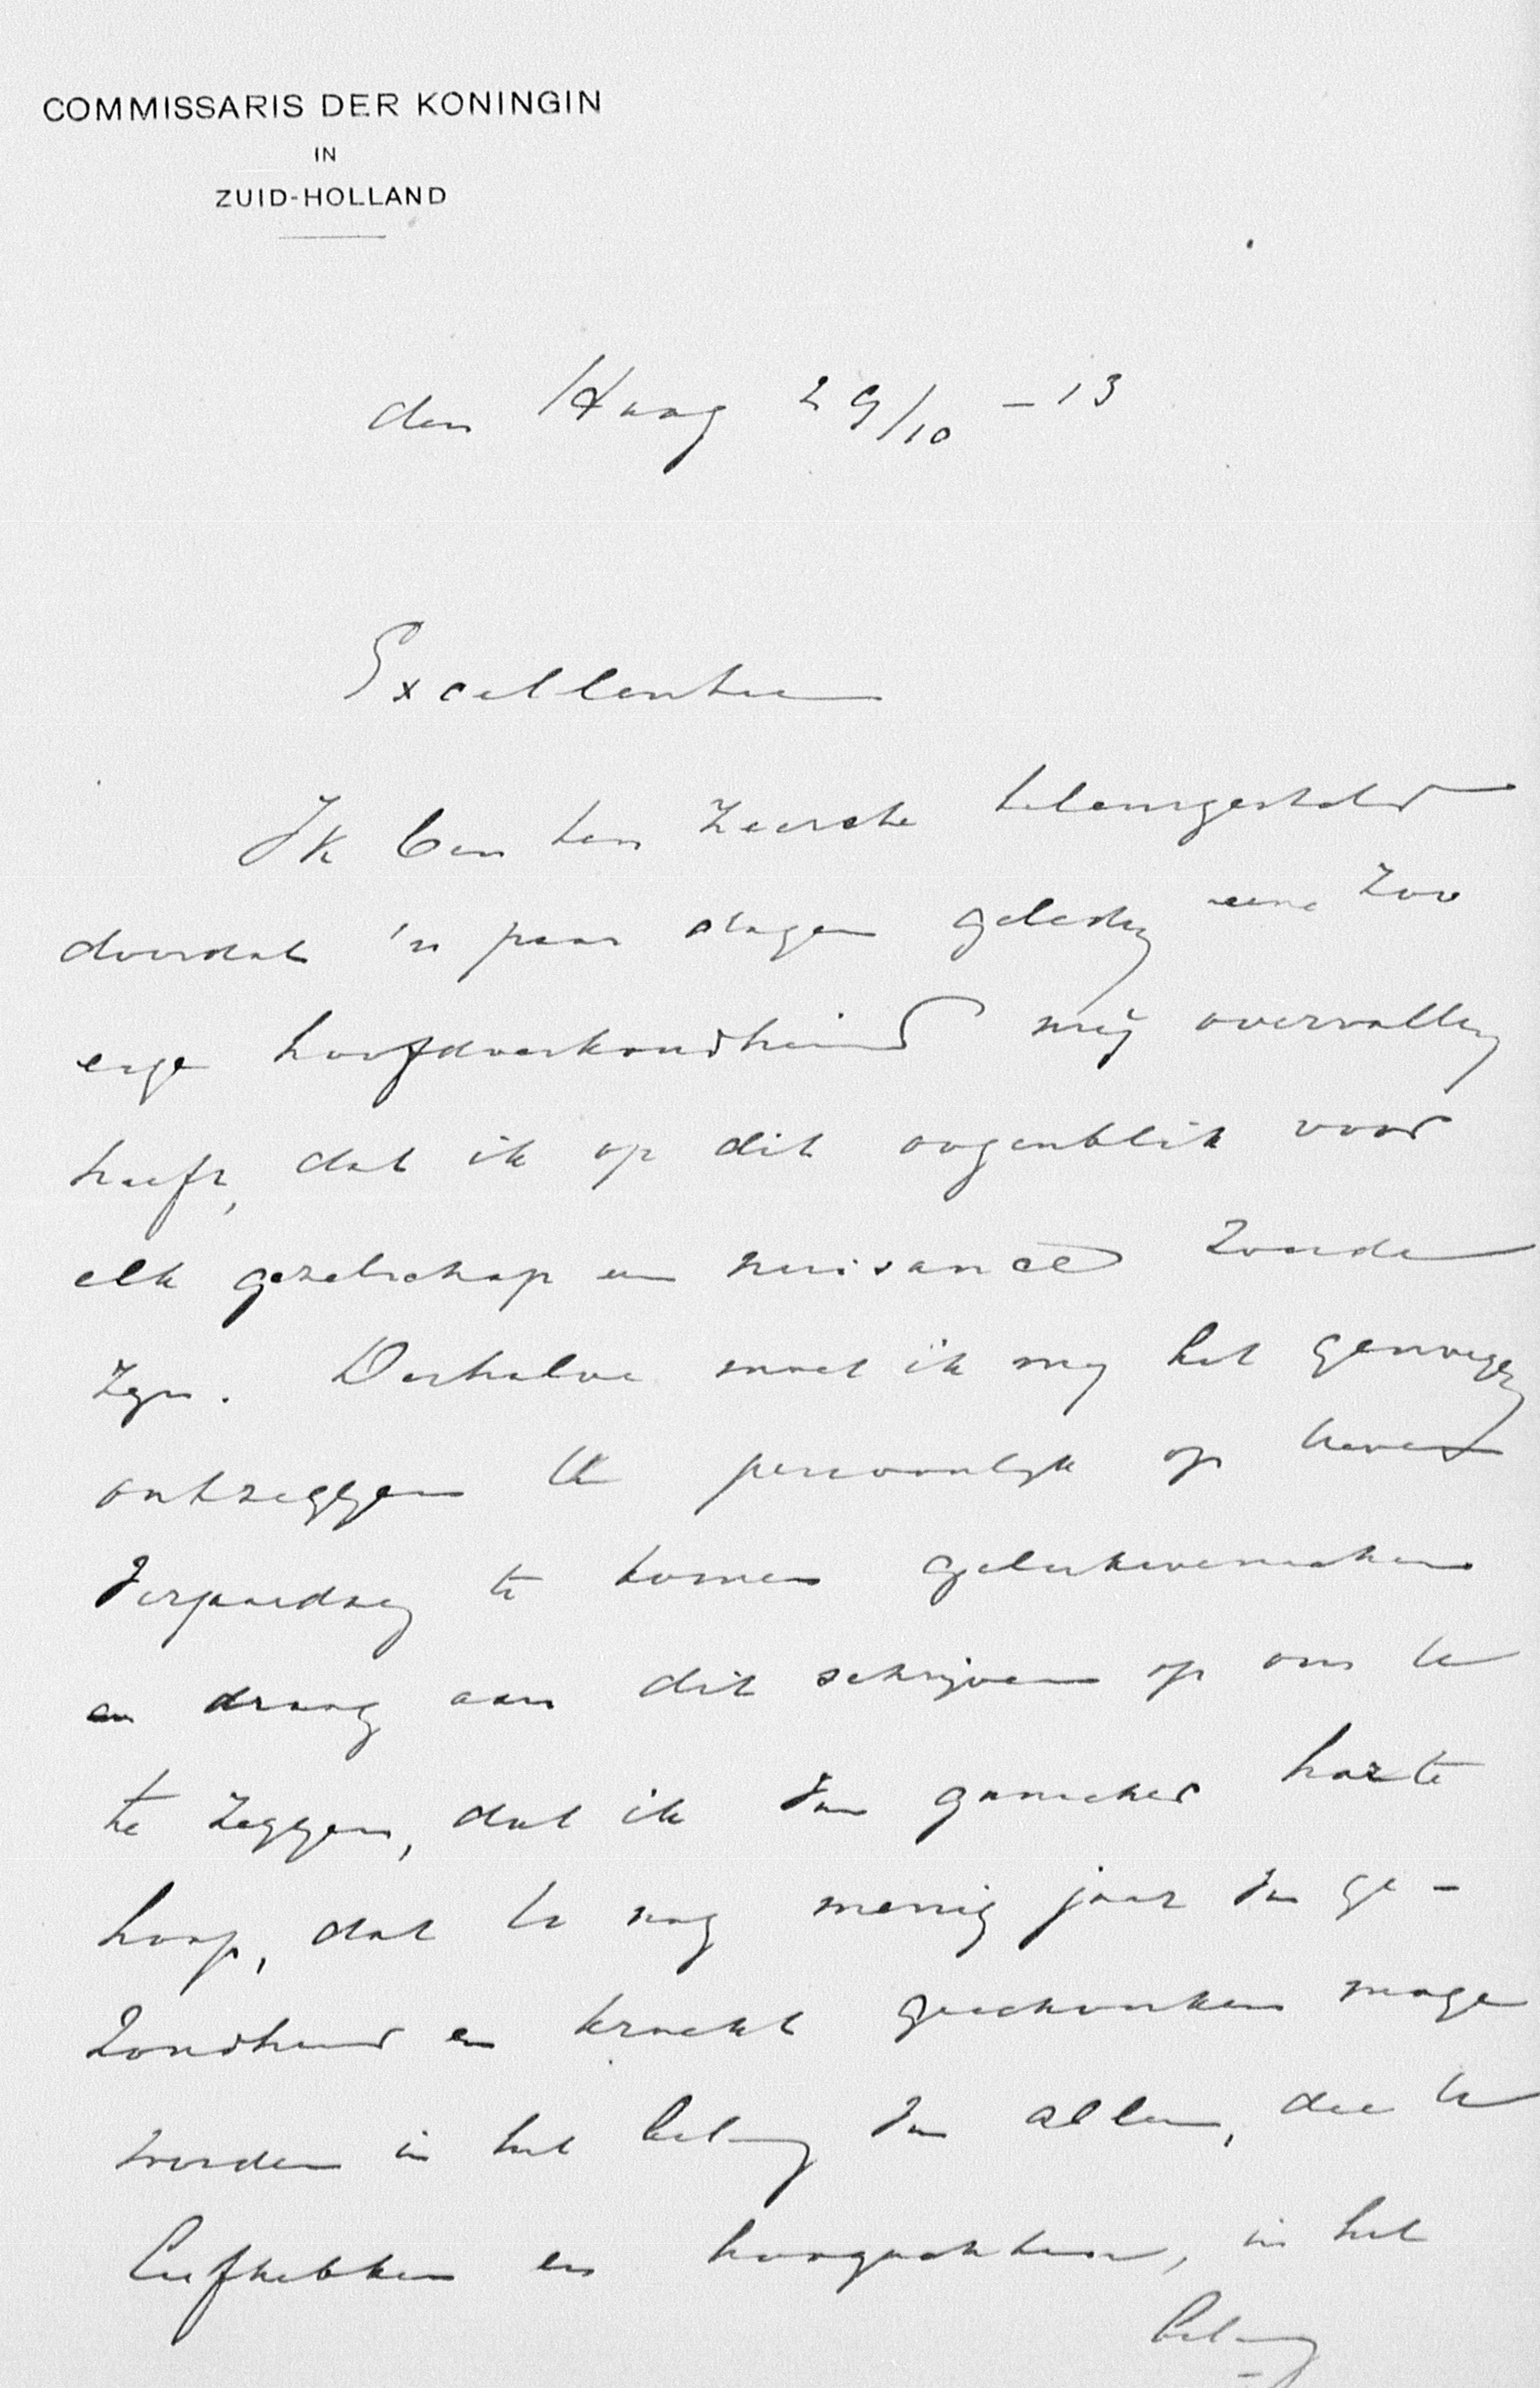 COMMISSARIS DER KONINGIN
IN
ZUID-HOLLAND
den Haag 29/10 - 13
Excellentie
Ik ben ten zeerste teleurgesteld
doordat 'n paar dagen geleden eene zoo
erge hoofdverkoudheid mij overvallen
heeft, dat ik op dit oogenblik voor
elk gezelschap een nuisance zoude
zijn. Derhalve moet ik mij het genoegen
ontzeggen U persoonlijk op Uwen
Verjaardag te komen gelukwenschen
en draag aan dit schrijven op om U
te zeggen, dat ik van ganscher harte
hoop, dat U nog menig jaar van ge-
zondheid en kracht geschonken moge
worden in het belang van allen, die U
liefhebben en hoogachten, in het
belang